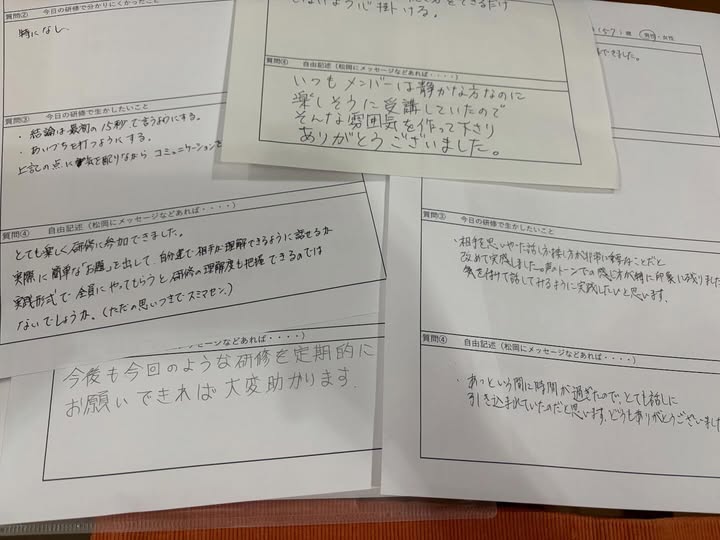 質問② 今日の研修で分かりにくかったこと
特になし
質問③ 今日の研修で生かしたいこと
・結論は最初の15秒で言うようにする。
・あいづちを打つようにする。
上記の点に気を配りながら コミュニケーションを
質問④ 自由記述(松岡にメッセージなどあれば・・・・)
とても楽しく研修に参加できました。
実際に簡単な「お題」を出して、自分達で相手が理解できるように話せるか
実践形式で全員にやってもらうと研修の理解度も把握できるのでは
ないでしょうか。(ただの思いつきでスミマセン。)
ないように心掛ける。
質問④ 自由記述(松岡にメッセージなどあれば・・・・)
いつもメンバーは静かな方なのに
楽しそうに受講していたので
そんな雰囲気を作って下さり
ありがとうございました。
などあれば・・・・)
今後も今回のような研修を定期的に
お願いできれば大変助かります。
(57)歳 男性・女性
できました。
質問③ 今日の研修で生かしたいこと
・相手を思いやった話し方・接し方が非常に重要なことだと
改めて実感しました。声のトーンでの感じ方が特に印象に残りました
気を付けて話してみるように実践したいと思います。
質問④ 自由記述(松岡にメッセージなどあれば・・・・)
・あっという間に時間が過ぎたので、とても話しに
引き込まれていたのだと思います。どうもありがとうございました